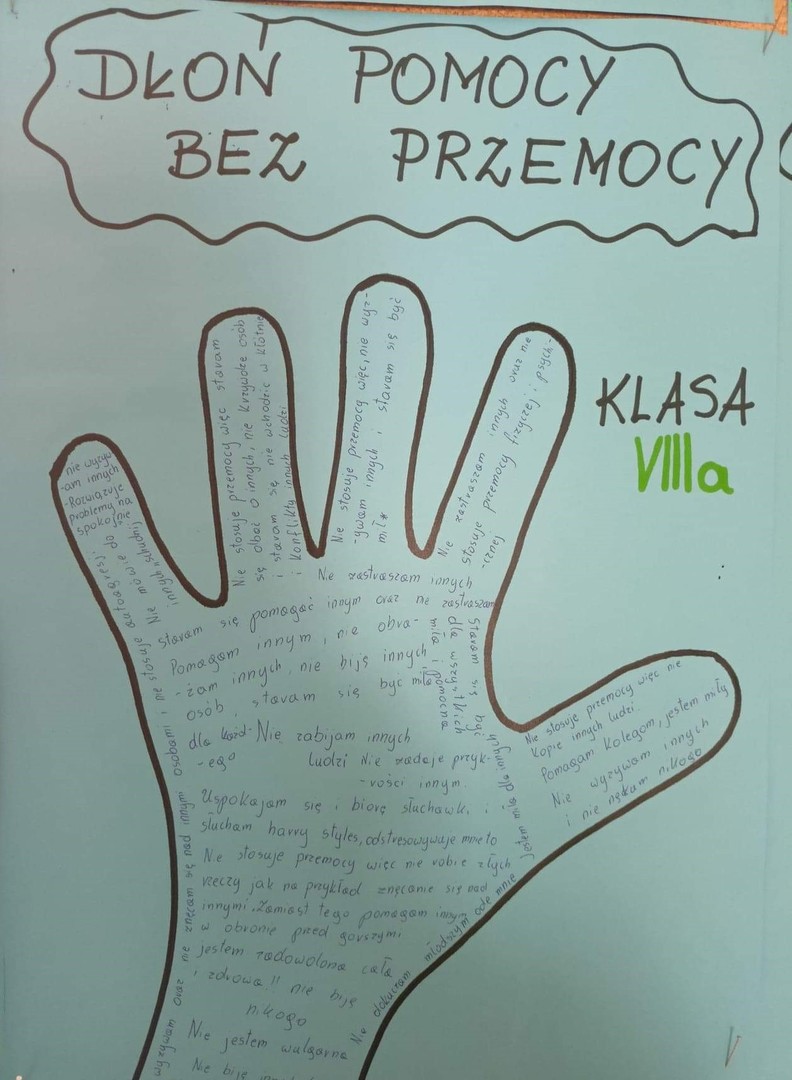 DŁOŃ POMOCY
BEZ PRZEMOCY
KLASA
VIIIa
nie wyzyw
-am innych
-Rozwiązuje
problemy na
spokojnie
Nie mówię do
innych
Nie stosuje przemocy więc staram
się dbać o innych, nie krzywdze osób
i staram się nie wchodzić w kłótnie
i konflikty innych ludzi
Nie stosuje przemocy więc, nie wyz-
-ywam innych i staram się być
mił*
Nie zastraszam innych oraz nie
stosuje przemocy fizycznej i psych-
-cznej
Nie stosuje przemocy więc nie
kopie innych ludzi.
Pomagam kolegom, jestem miły
Nie wyzywam innych
i nie nękam nikogo
Nie zastraszam innych
staram się pomagać innym oraz nie zastraszam
Pomagam innym, nie obra-
-żam innych, nie biję innych
osób, staram się być miła
dla każd-
-ego
Staram się być
dla wszystkich
miła i pomocna
Nie zabijam innych
ludzi Nie zadaje przyk-
-rości innym
Uspokajam się i biorę słuchawki i
słucham harry styles, odstresowywuje mnie to
Nie stosuje przemocy więc nie robie złych
rzeczy jak na przykład znęcanie się nad
innymi. Zamiast tego pomagam innym
w obronie przed gorszymi
jestem zadowolona cała
i zdrowa!! nie biję
nikogo
Nie jestem wulgarna
Nie biję
wyzywam oraz nie znęcam się nad innymi osobami i nie stosuje autoagresji.
Nie dokuczam młodszym ode mnie
jestem miła dla innych